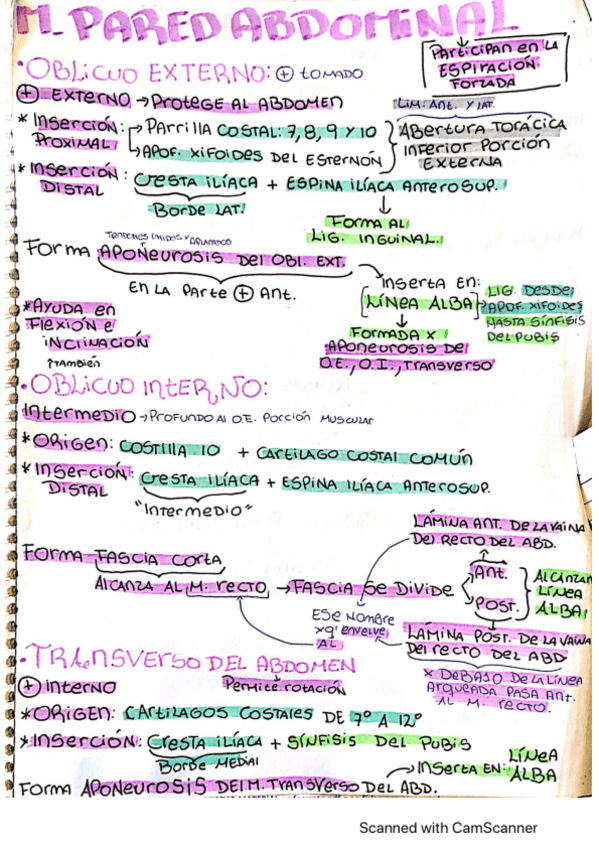 M. PARED ABDOMINAL
PARTICIPAN EN LA
ESPIRACIÓN
FORZADA
• OBLICUO EXTERNO: ⊕ tomado
⊕ EXTERNO → PROTEGE AL ABDOMEN
LIM: ANT. Y LAT.
* INSERCIÓN: PROXIMAL
PARRILLA COSTAL: 7, 8, 9 Y 10
APOF. XIFOIDES DEL ESTERNÓN
ABERTURA TORÁCICA
INFERIOR PORCIÓN
EXTERNA
* INSERCIÓN: DISTAL
CRESTA ILÍACA + ESPINA ILÍACA ANTEROSUP.
BORDE LAT.
FORMA AL
LIG. INGUINAL.
TENDONES UNIDOS Y APLANADO
FORMA APONEUROSIS DEL OBL. EXT.
EN LA PARTE ⊕ ANT.
INSERTA EN:
LÍNEA ALBA →
LIG. DESDE
APOF. XIFOIDES
HASTA SÍNFISIS
DEL PUBIS
FORMADA X
APONEUROSIS DE
O.E., O.I., TRANSVERSO
* AYUDA EN
FLEXIÓN E
INCLINACIÓN
↑ TAMBIÉN
• OBLICUO INTERNO:
INTERMEDIO → PROFUNDO AL O.E. PORCIÓN MUSCULAR
* ORIGEN: COSTILLA 10 + CARTILAGO COSTAL COMÚN
* INSERCIÓN: DISTAL
CRESTA ILÍACA + ESPINA ILÍACA ANTEROSUP.
"INTERMEDIO"
LÁMINA ANT. DE LA VAINA
DEL RECTO DEL ABD.
FORMA FASCIA CORTA
ALCANZA AL M. RECTO → FASCIA SE DIVIDE
ANT.
POST.
ALCANZAN
LÍNEA
ALBA
ESE NOMBRE
XQ' ENVUELVE
AL
LÁMINA POST. DE LA VAINA
DEL RECTO DEL ABD
X DEBAJO DE LA LÍNEA
ARQUEADA PASA ANT.
AL M. RECTO.
• TRANSVERSO DEL ABDOMEN
⊕ INTERNO
PERMITE ROTACIÓN
* ORIGEN: CARTILAGOS COSTALES DE 7° A 12°
* INSERCIÓN: CRESTA ILÍACA + SÍNFISIS DEL PUBIS
BORDE MEDIAL
FORMA APONEUROSIS DEL M. TRANSVERSO DEL ABD.
→ INSERTA EN: LÍNEA ALBA
Scanned with CamScanner